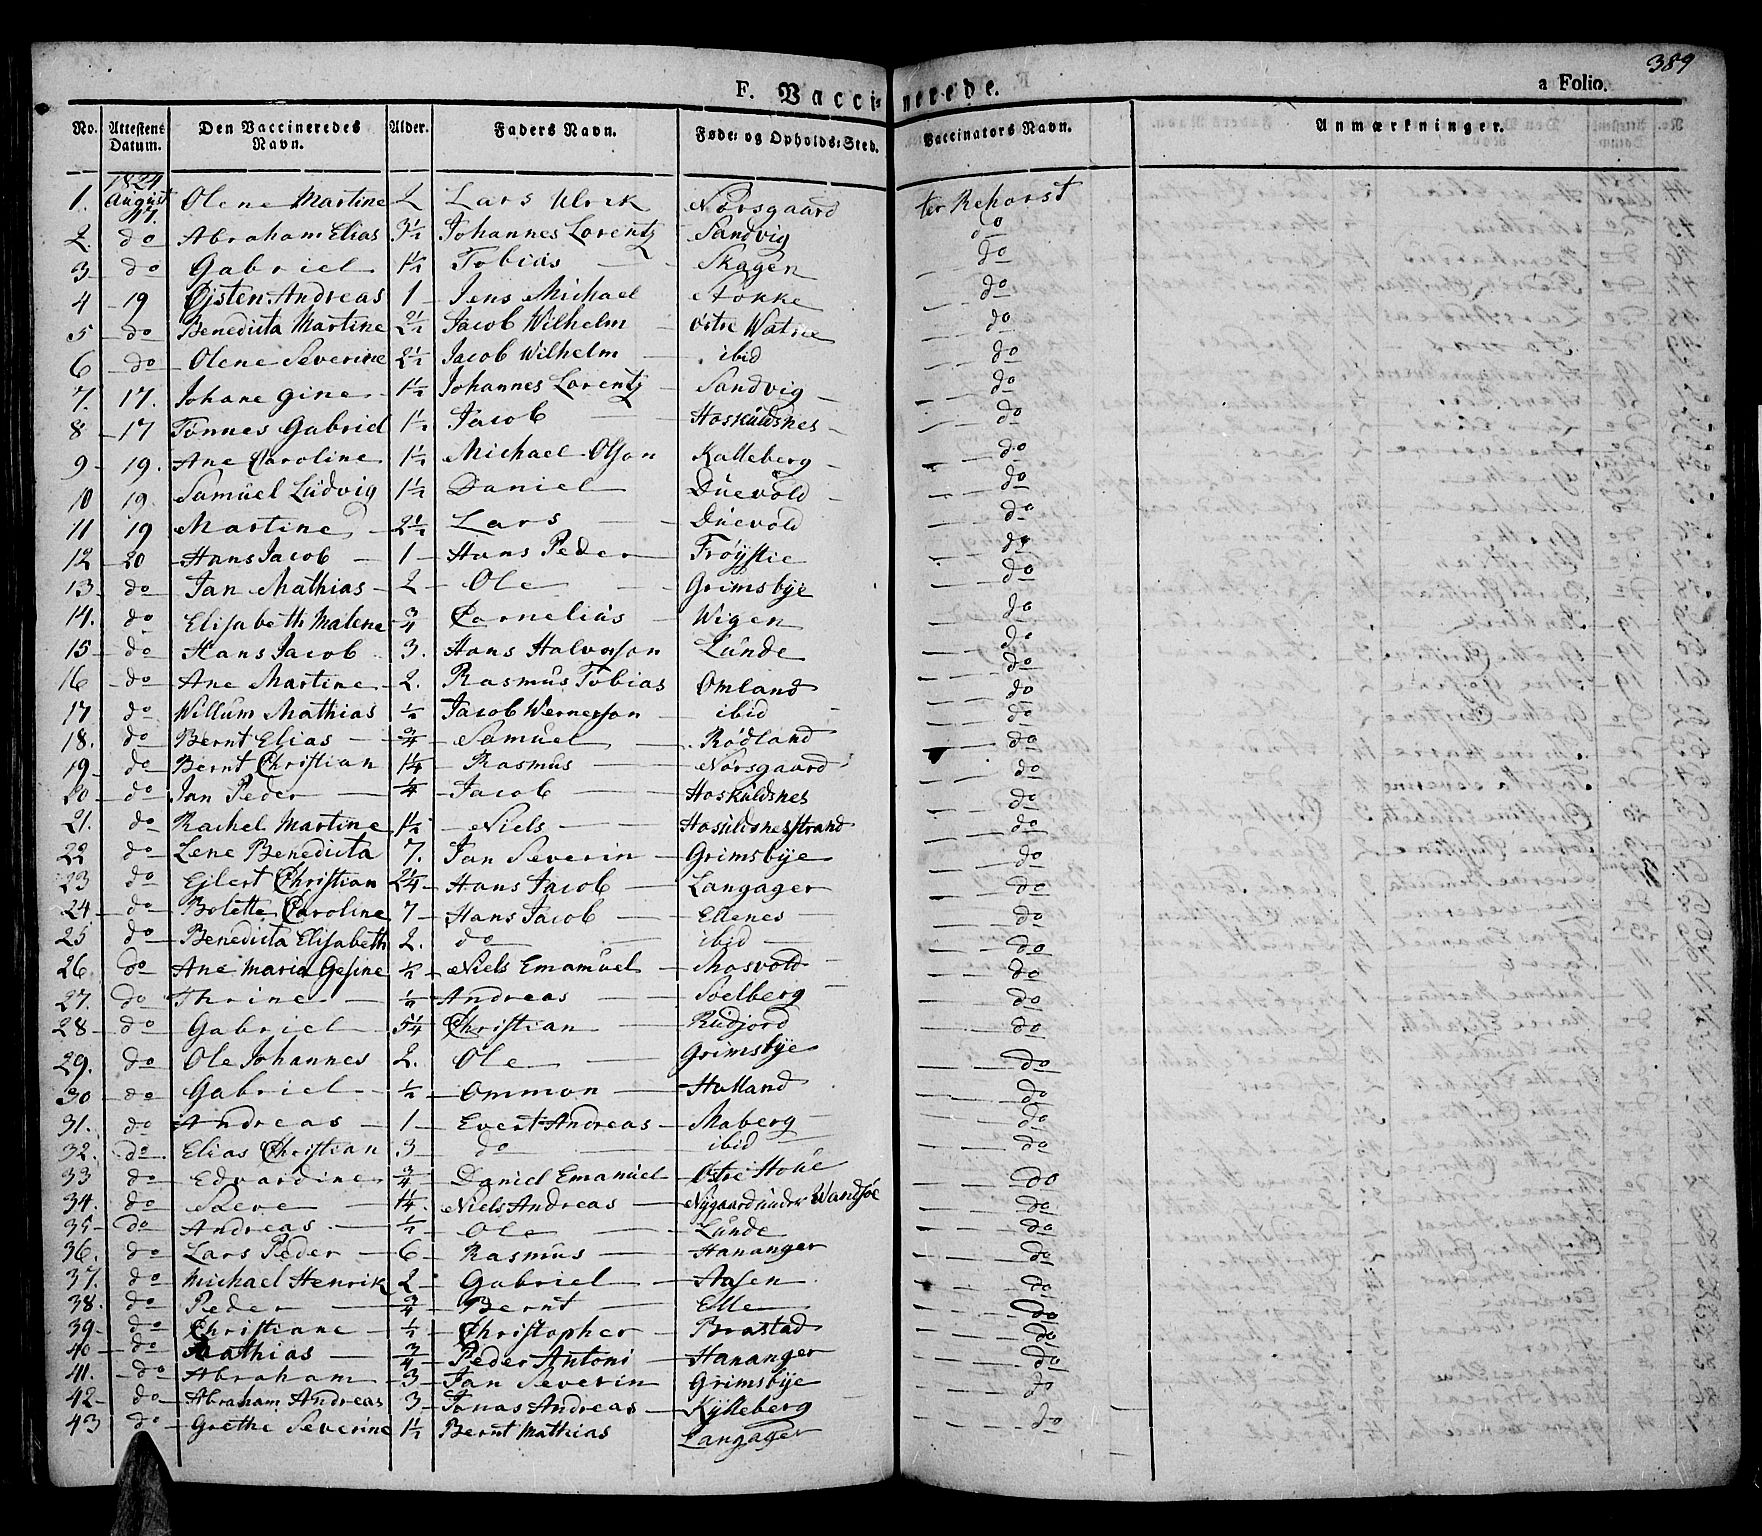 389
F. Vaccinerede. a Folio.
No. Attestens Datum. Den Vaccineredes Navn. Alder. Faders Navn. Føde- og Opholds-Sted. Vaccinators Navn. Anmærkninger.
1824
1. August 17. Olene Martine 2 Lars Ulrik Norsgaard ter Rehorst
2. do Abraham Elias 3½ Johannes Lorentz Sandvig do
3 do Gabriel 1½ Tobias Skagen do
4 19 Øjsten Andreas 1 Jens Michael Stokke do
5 do Benedicta Martine 2½ Jacob Wilhelm østre Watne do
6 do Olene Severine 2½ Jacob Wilhelm ibid do
7. 17. Johane Gine 1½ Johannes Lorentz Sandvig do
8 17 Tønnes Gabriel 1½ Jacob Hoskúldsnes do
9 19. Ane Caroline 1½ Michael Olson Kalleberg do
10 19. Samúel Lúdvig 1½ Daniel Dúevold do
11 19 Martine 2½ Lars Dúevold do
12 20 Hans Jacob 1 Hans Peder Frøystie do
13 do Jan Mathias 2 Ole Grimsbye do
14. do Elisabeth Malene ¾ Corneliús Wigen do
15 do Hans Jacob 3. Hans Halvorson Lúnde do
16 do Ane Martine 2. Rasmús Tobias Omland do
17 do Willum Mathias ½ Jacob Wernerson ibid do
18. do Bernt Elias ¾ Samúel Rødland do
19 do Bernt Christian 1¼ Rasmús Norsgaard do
20 do Jan Peder ¼ Jacob Hoskúldsnes do
21. do Rachel Martine 1½ Niels Hosúldsnesstrand do
22 do Lene Benedicta 7. Jan Severin Grimsbye do
23 do Ejlert Christian 2¼ Hans Jacob Langager do
24 do Bolette Caroline 7 Hans Jacob Ellenes do
25 do Benedicta Elisabeth 2. do ibid do
26. do Ane Maria Gesine ½ Niels Emanúel Mosvold do
27. do Thrine ½ Andreas Soelberg do
28 do Gabriel 5¼ Christian Rúdjord do
29. do Ole Johannes 2. Ole Grimsbye do
30 do Gabriel ½ Ommon Hulland do
31. do Andreas 1 Evert Andreas Maberg do
32. do Elias Christian 3 do ibid do
33 do Edvardine ¾ Daniel Emanúel Østre Hoúe do
34. do Save 1¼. Niels Andreas Nygaard únder Wandsøe do
35 do Andreas ½ Ole Lúnde do
36. do Lars Peder 6 Rasmús Hananger do
37. do Michael Henrik 2 Gabriel Aasen do
38. do Peder ¾ Bernt Elle do
39 do Christiane ½ Christopher Brastad do
40 do Mathias ¾ Peder Antoni Hananger do
41. do Abraham 3 Jan Severin Grimsbye do
42 do Abraham Andreas 3 Jonas Andreas Kylleberg do
43 do Grethe Severine 1½ Bernt Mathias Langager do